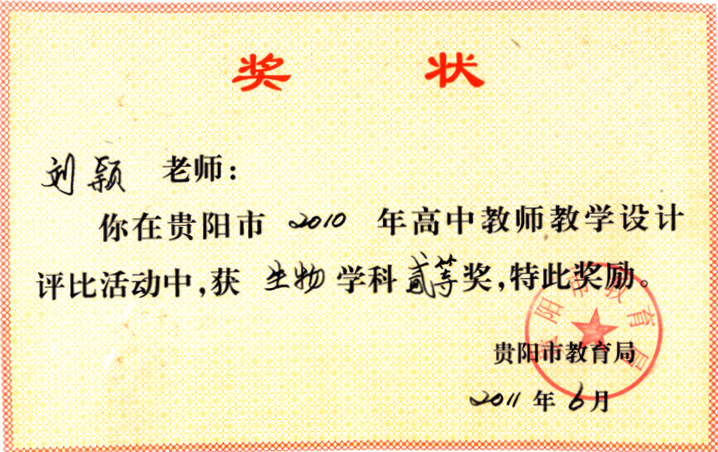 奖 状
刘颖 老师:
你在贵阳市 2010 年高中教师教学设计
评比活动中,获 生物 学科 贰等 奖,特此奖励。
贵阳市教育局
2011 年 6 月
贵阳市教育局